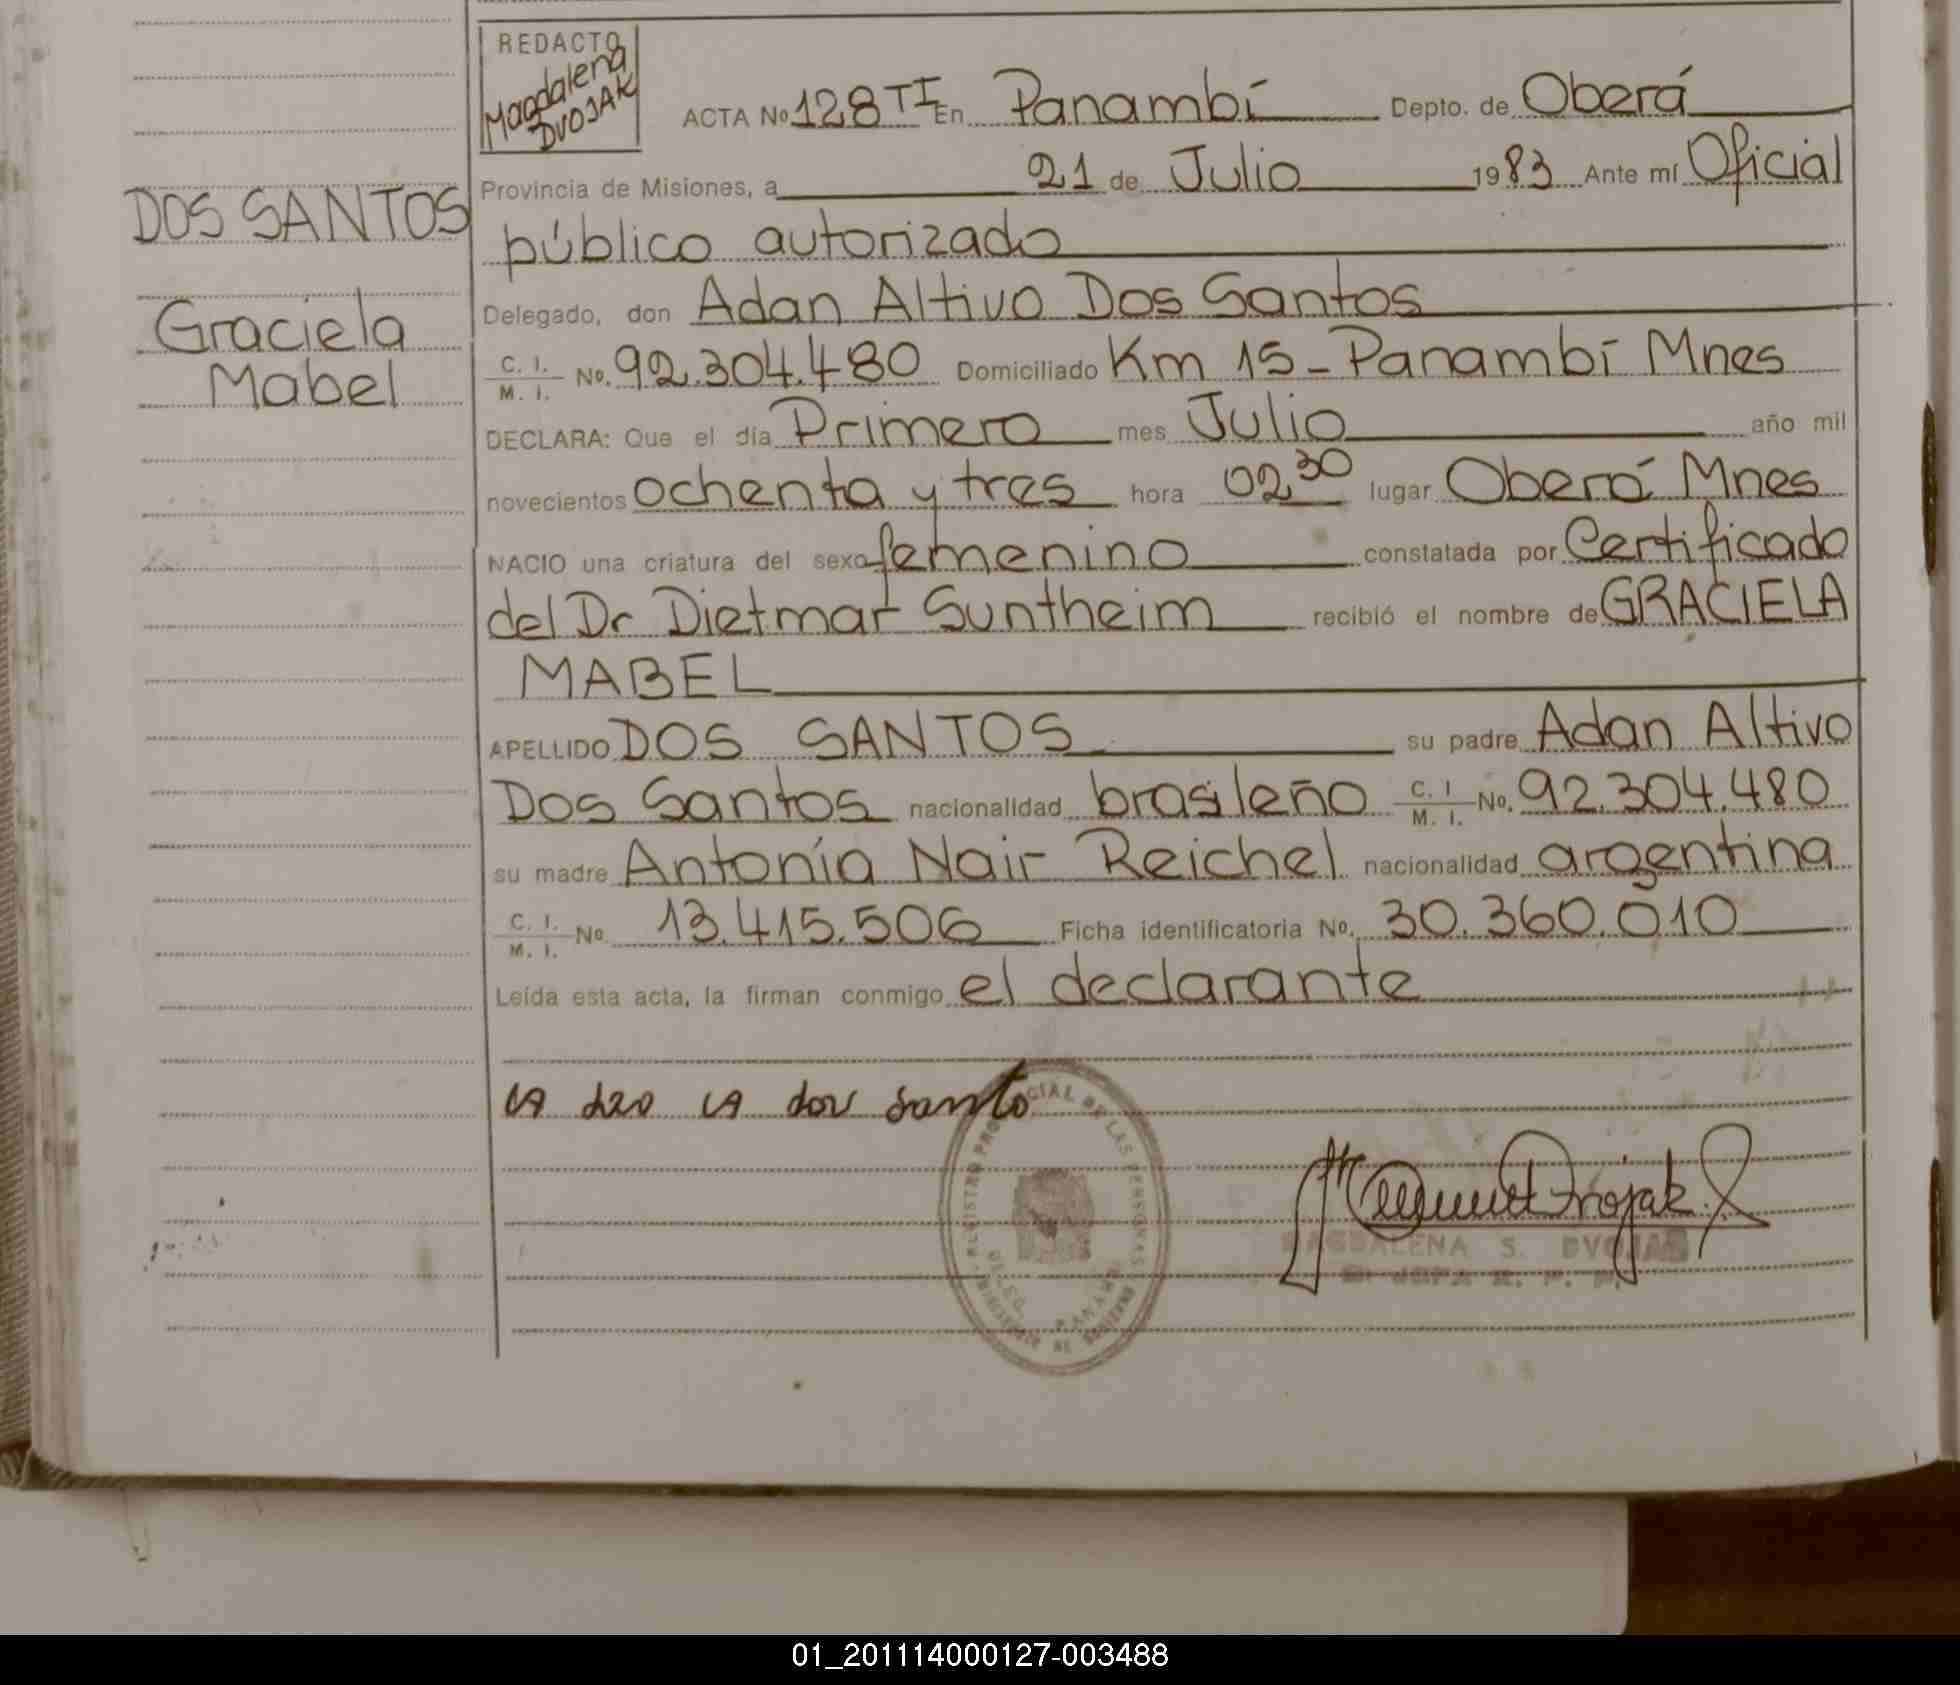 REDACTO
Magdalena
DVOJAK
ACTA No 128 TI En Panambí Depto. de Oberá
Provincia de Misiones, a 21 de Julio 1983 Ante mí Oficial
público autorizado
Delegado, don Adan Altivo Dos Santos
C. I. M. I. No. 92.304.480 Domiciliado Km 15 - Panambí Mnes
DECLARA: Que el día Primero mes Julio año mil
novecientos ochenta y tres hora 02,30 lugar Oberá Mnes
NACIO una criatura del sexo femenino constatada por Certificado
del Dr Dietmar Suntheim recibió el nombre de GRACIELA
MABEL
APELLIDO DOS SANTOS su padre Adan Altivo
Dos Santos nacionalidad brasileño C. I M. I. No. 92.304.480
su madre Antonía Nair Reichel nacionalidad argentina
C. I. M. I. No 13.415.506 Ficha identificatoria No. 30.360.010
Leída esta acta, la firman conmigo el declarante
DOS SANTOS
Graciela
Mabel
dos santo
MAGDALENA S. DVOJAK
01_201114000127-003488